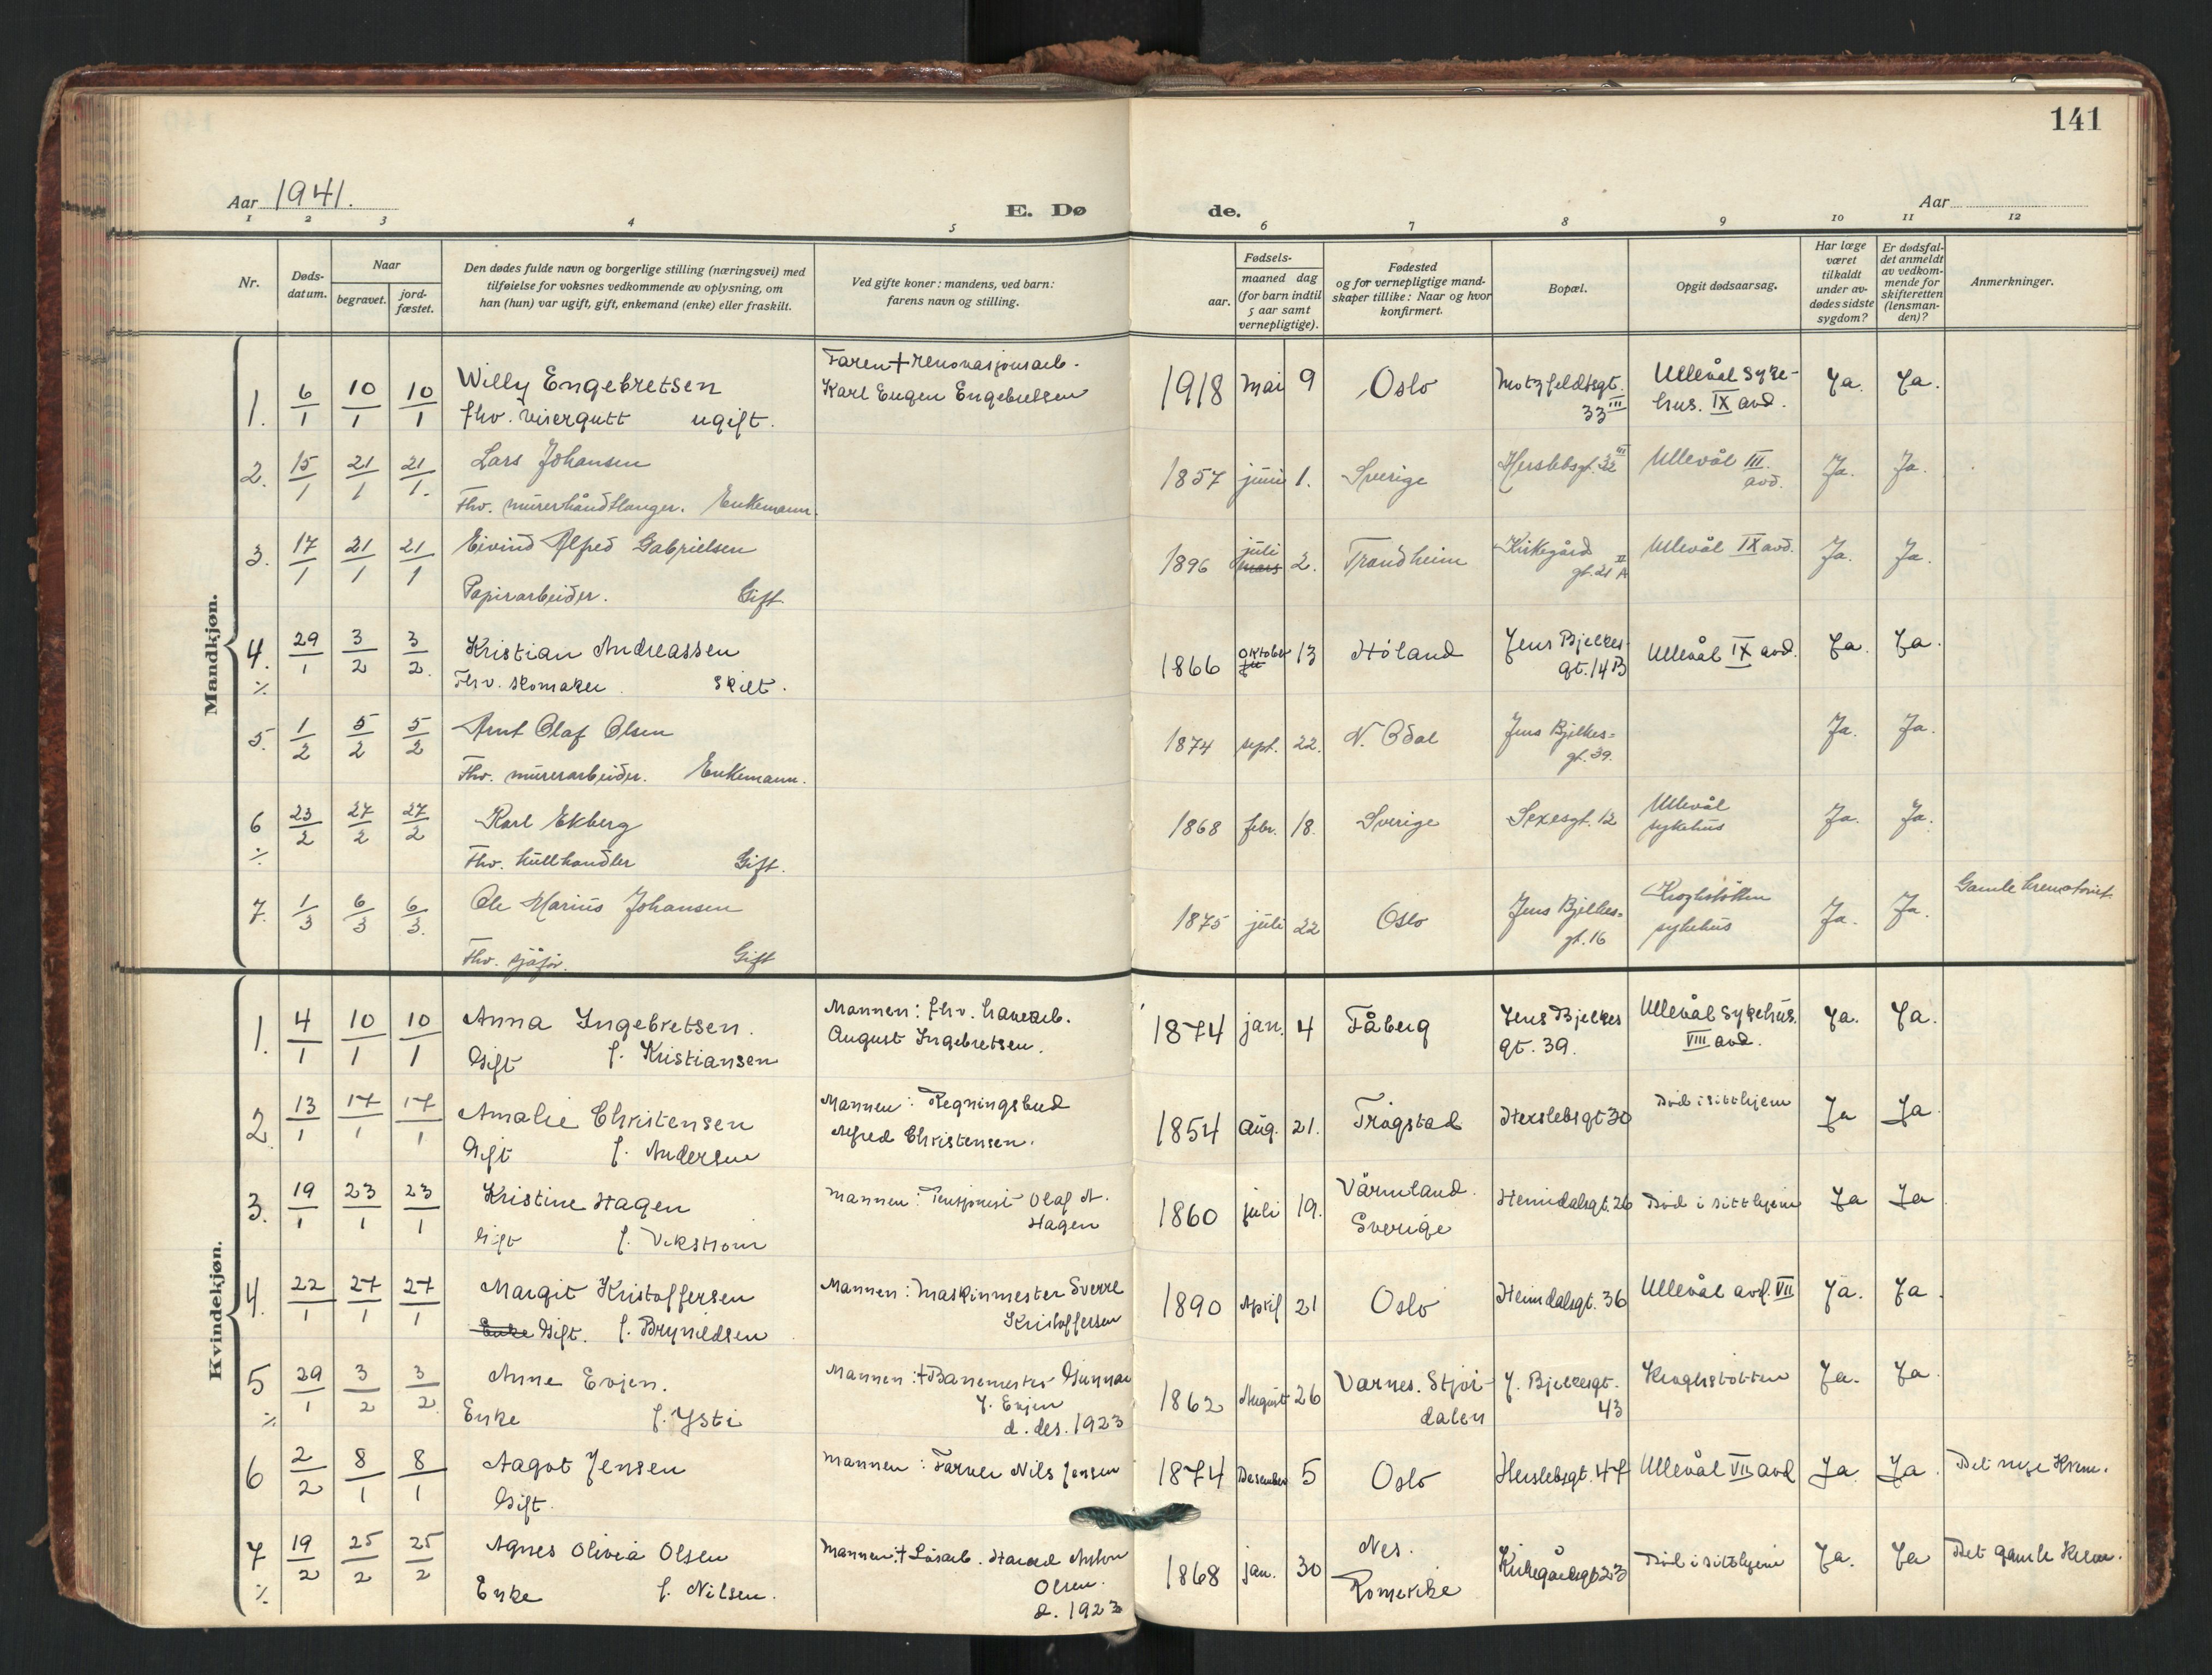 141
Aar 1941.
E. Dø
de.
Aar
1 2 3 4 5 6 7 8 9 10 11 12
Nr.
Døds-
datum.
Naar
begravet.
jord-
fæstet.
Den dødes fulde navn og borgerlige stilling (næringsvei) med
tilføielse for voksnes vedkommende av oplysning, om
han (hun) var ugift, gift, enkemand (enke) eller fraskilt.
Ved gifte koner: mandens, ved barn:
farens navn og stilling.
Fødsels-
aar.
maaned dag
(for barn indtil
5 aar samt
vernepligtige).
Fødested
og for vernepligtige mand-
skaper tillike: Naar og hvor
konfirmert.
Bopæl.
Opgit dødsaarsag.
Har læge
været
tilkaldt
under av-
dødes sidste
sygdom?
Er dødsfal-
det anmeldt
av vedkom-
mende for
skifteretten
(lensman-
den)?
Anmerkninger.
Mandkjøn.
1. 6/1 10/1 10/1 Willy Engebretsen
fhv. visergutt ugift.
Faren + renovasjonsarb.
Karl Eugen Engebretsen
1918 mai 9 Oslo
Motzfeldtsgt.
33 III
Ullevål syke-
hus. IX avd.
Ja. Ja.
2. 15/1 21/1 21/1. Lars Johansen
Fhv. murerhåndtlanger. Enkemann.
1857 juni 1. Sverige Herslebsgt. 32 III
Ullevål III.
avd.
Ja. Ja.
3. 17/1 21/1 21/1 Eivind Alfred Gabrielsen
Papirarbeider. Gift.
1896 juli mars 2. Trondheim
Kirkegård
gt. 21 A II
Ullevål IX avd. Ja. Ja.
4. 29/1 3/2 3/2. Kristian Andreassen
Fhv. skomaker. Skilt.
%
1866 oktober 13 Höland
Jens Bjelkes-
gt. 14 B
Ullevål IX avd. Ja. Ja.
5. 1/2 5/2 5/2 Arnt Olaf Olsen
Fhv. murerarbeider. Enkemann.
1874 sept. 22. N. Odal
Jens Bjelkes=
gt. 39.
Ja. Ja.
6 23/2 27/2 27/2 Karl Ekberg
Fhv. kullhandler Gift.
%
1868 febr. 18. Sverige Sexesgt. 12
Ullevål
sykehus
Ja. Ja.
7. 1/3 6/3 6/3. Ole Marius Johansen
Fhv. sjåfør. Gift
1875 juli 22 Oslo
Jens Bjelkes=
gt. 16
Kroghstötten
sykehus
Ja. Ja. Gamle krematoriet
Kvindekjøn.
1. 4/1 10/1 10/1 Anna Ingebretsen.
Gift f. Kristiansen
Mannen: fhv. havearb.
August Ingebretsen.
1874 jan. 4 Fåberg
Jens Bjelkes
gt. 39.
Ullevål Sykehus.
VIII avd.
Ja. Ja.
2. 13/1 17/1 17/1 Amalie Christensen
Gift f. Andersen
Mannen: Regningsbud
Alfred Christensen.
1854 Aug. 21. Trögstad Herslebsgt 30 Död i sitt hjem Ja Ja.
3. 19/1 23/1 23/1 Kristine Hagen
Gift f. Vikstrom
Mannen: Pensjonist Olaf A.
Hagen
1860 juli 19.
Värmland.
Sverige
Heimdalsgt. 26 Död i sitt hjem Ja Ja
4. 22/1 27/1 27/1 Margit Kristoffersen
Enke Gift. f. Brynildsen
Mannen: Maskinmester Sverre
Kristoffersen
1890 April 21 Oslo Heimdalsgt. 36 Ullevål avd. VII Ja. Ja.
5 29/1 3/2 3/2. Anne Evjen.
Enke f. Ysti
%
Mannen: + Banemester Gunnar
J. Evjen
d. des. 1923
1862 August 26
Varnes. Stjör-
dalen
J. Bjelkesgt.
43
Kroghstötten Ja. Ja.
6 2/2 8/1 8/1 Aagot Jensen
Gift.
Mannen: Farver Nils Jensen
1874 Desember 5 Oslo Herslebsgt. 47 Ullevål VII avd Ja. Ja. Det nye Krem.
7 19/2 25/2 25/2 Agnes Olivia Olsen
Enke f. Nilsen.
%
Mannen: + Lösarb. Harald Anton
Olsen.
d. 1923
1868 jan. 30
Nes.
Romerike
Kirkegårdsgt 23 Död i sitt hjem Ja. Ja Det gamle Krem.